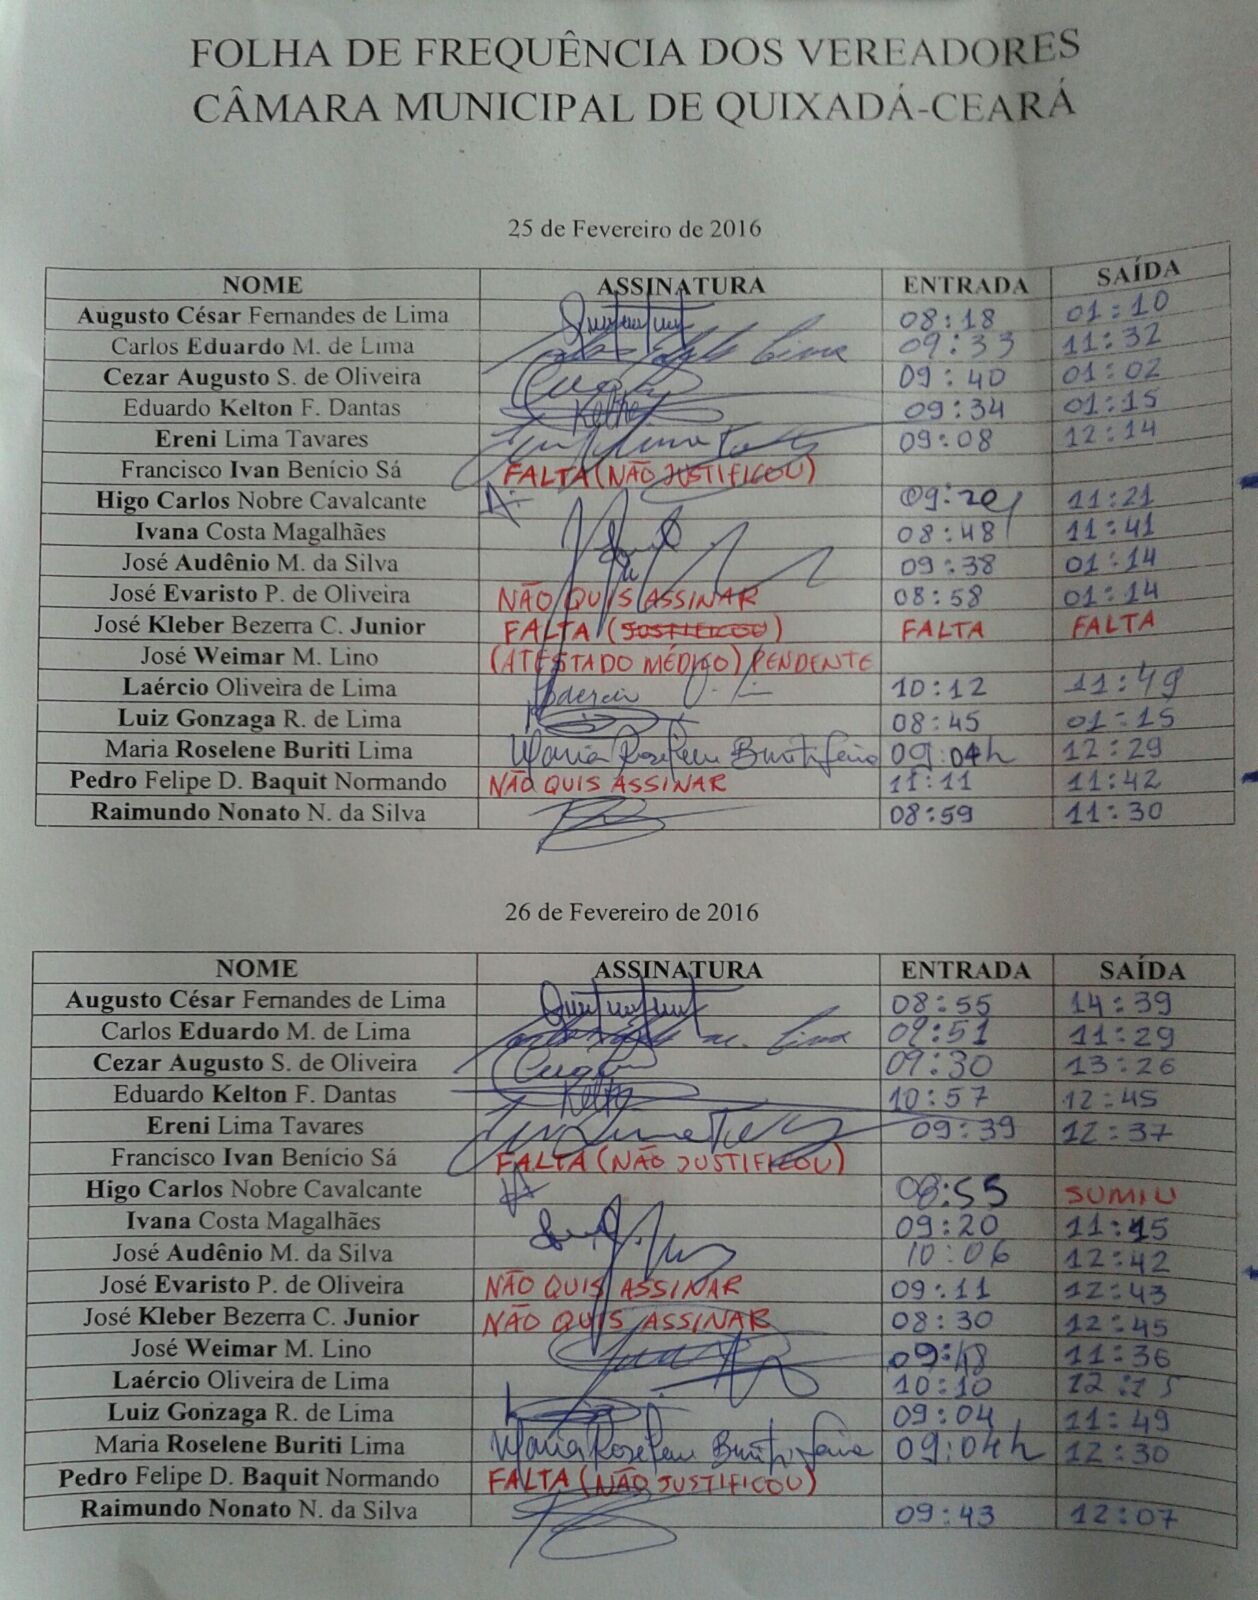 FOLHA DE FREQUÊNCIA DOS VEREADORES
CÂMARA MUNICIPAL DE QUIXADÁ-CEARÁ
25 de Fevereiro de 2016
NOME ASSINATURA ENTRADA SAÍDA
Augusto César Fernandes de Lima 08:18 01:10
Carlos Eduardo M. de Lima 09:33 11:32
Cezar Augusto S. de Oliveira 09:40 01:02
Eduardo Kelton F. Dantas Kelton 09:34 01:15
Ereni Lima Tavares 09:08 12:14
Francisco Ivan Benício Sá FALTA (NÃO JUSTIFICOU)
Higo Carlos Nobre Cavalcante 09:20 11:21
Ivana Costa Magalhães 08:48 11:41
José Audênio M. da Silva 09:38 01:14
José Evaristo P. de Oliveira NÃO QUIS ASSINAR 08:58 01:14
José Kleber Bezerra C. Junior FALTA (JUSTIFICOU) FALTA FALTA
José Weimar M. Lino (ATESTADO MÉDICO) PENDENTE
Laércio Oliveira de Lima Laercio 10:12 11:49
Luiz Gonzaga R. de Lima 08:45 01:15
Maria Roselene Buriti Lima Maria Roselene Buriti Lima 09:04h 12:29
Pedro Felipe D. Baquit Normando NÃO QUIS ASSINAR 11:11 11:42
Raimundo Nonato N. da Silva 08:59 11:30
26 de Fevereiro de 2016
NOME ASSINATURA ENTRADA SAÍDA
Augusto César Fernandes de Lima 08:55 14:39
Carlos Eduardo M. de Lima 09:51 11:29
Cezar Augusto S. de Oliveira 09:30 13:26
Eduardo Kelton F. Dantas Kelton 10:57 12:45
Ereni Lima Tavares 09:39 12:37
Francisco Ivan Benício Sá FALTA (NÃO JUSTIFICOU)
Higo Carlos Nobre Cavalcante 08:55 SUMIU
Ivana Costa Magalhães 09:20 11:45
José Audênio M. da Silva 10:06 12:42
José Evaristo P. de Oliveira NÃO QUIS ASSINAR 09:11 12:43
José Kleber Bezerra C. Junior NÃO QUIS ASSINAR 08:30 12:45
José Weimar M. Lino 09:48 11:36
Laércio Oliveira de Lima 10:10 12:15
Luiz Gonzaga R. de Lima 09:04 11:49
Maria Roselene Buriti Lima Maria Roselene Buriti Lima 09:04h 12:30
Pedro Felipe D. Baquit Normando FALTA (NÃO JUSTIFICOU)
Raimundo Nonato N. da Silva 09:43 12:07